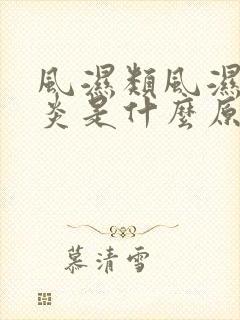 風濕類風濕
炎是什麼原
慕清雪